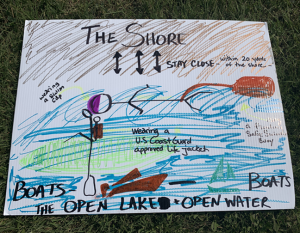 THE SHORE
STAY CLOSE - within 20 yards
of the shore -
wearing
a swim
cap
Wearing a
U.S Coast Guard
approved life jacket
Buoy
BOATS
BOATS
THE OPEN LAKE & OPEN WATER